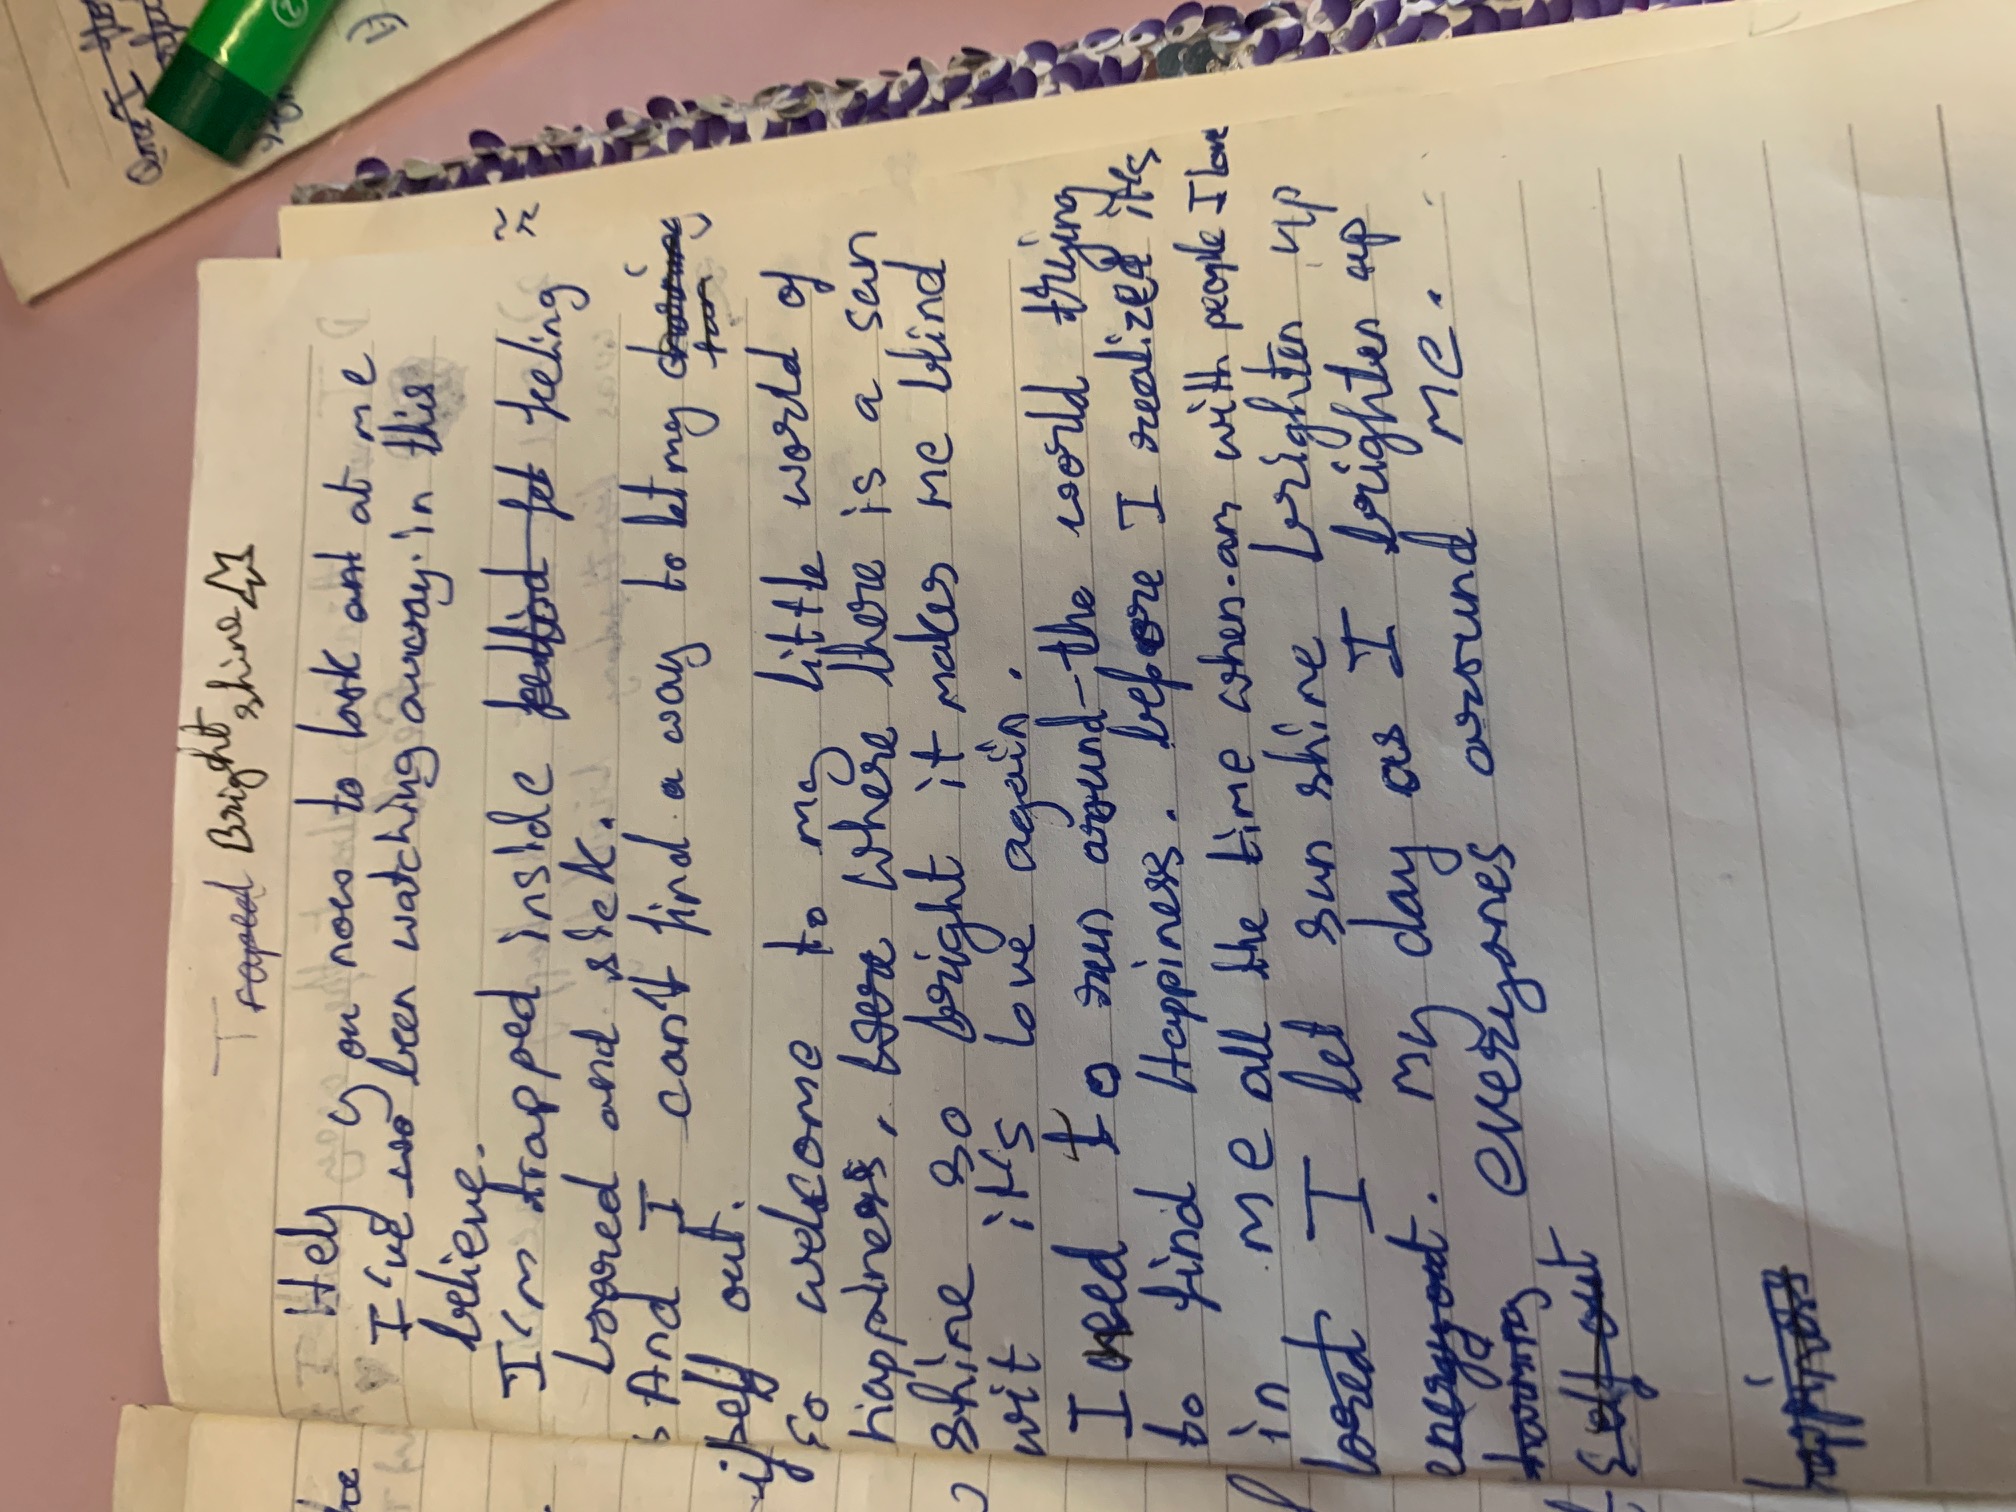 Traped Bright shine
Hely you now to look out at me
I've wo been watching away in this
believe.
I'm trapped inside feeling
boored and sick.
And I can't find a way to let my
itself out.
So welcome to my little world of
Happiness, were where there is a sun
shine so bright it makes me blind
wit it's love again.
I need to run around the world trying
to find Happiness. before I realized it's
in me all the time when am with people I love
loved I let sun shine brighten up
energy out. my day as I brighten up
everyones around me.
self out
happiness